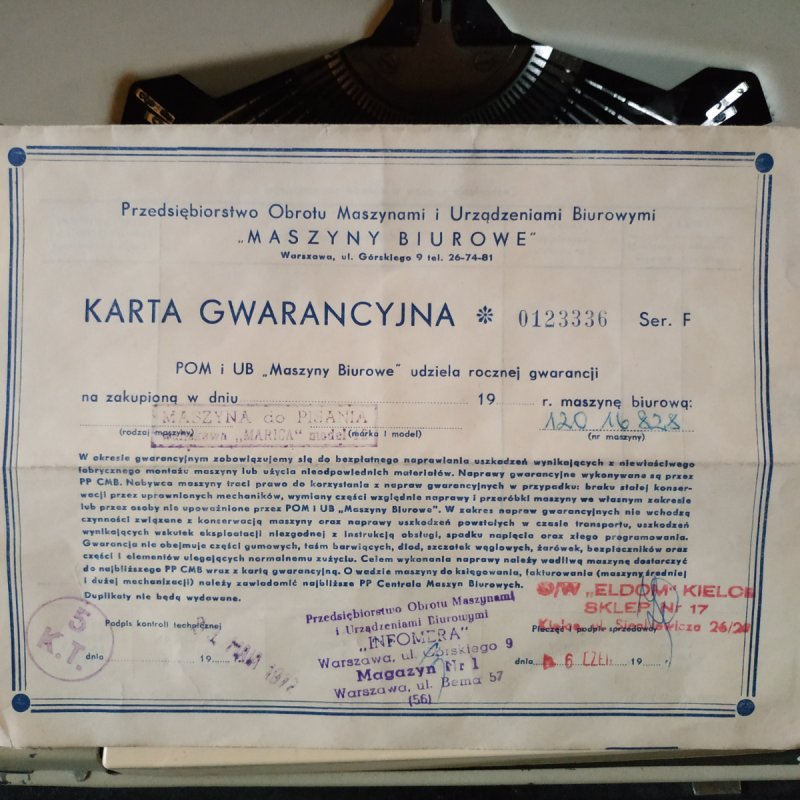 Przedsiębiorstwo Obrotu Maszynami i Urządzeniami Biurowymi
„MASZYNY BIUROWE"
Warszawa, ul. Górskiego 9 tel. 26-74-81
KARTA GWARANCYJNA * 0123336 Ser. F
POM i UB „Maszyny Biurowe" udziela rocznej gwarancji
na zakupioną w dniu 19 r. maszynę biurową:
MASZYNA do PISANIA 120 16828
(rodzaj maszyny) „MARICA" model (marka i model) (nr maszyny)
W okresie gwarancyjnym zobowiązujemy się do bezpłatnego naprawiania uszkodzeń wynikających z niewłaściwego
fabrycznego montażu maszyny lub użycia nieodpowiednich materiałów. Naprawy gwarancyjne wykonywane są przez
PP CMB. Nabywca maszyny traci prawo do korzystania z napraw gwarancyjnych w przypadku: braku stałej konser-
wacji przez uprawnionych mechaników, wymiany części względnie naprawy i przeróbki maszyny we własnym zakresie
lub przez osoby nie upoważnione przez POM i UB „Maszyny Biurowe". W zakres napraw gwarancyjnych nie wchodzą
czynności związane z konserwacją maszyny oraz naprawy uszkodzeń powstałych w czasie transportu, uszkodzeń
wynikających wskutek eksploatacji niezgodnej z instrukcją obsługi, spadku napięcia oraz złego programowania.
Gwarancja nie obejmuje części gumowych, taśm barwiących, diod, szczotek węglowych, żarówek, bezpieczników oraz
części i elementów ulegających normalnemu zużyciu. Celem wykonania naprawy należy wadliwą maszynę dostarczyć
do najbliższego PP CMB wraz z kartą gwarancyjną. O wadzie maszyny do księgowania, fakturowania (maszyny średniej
i dużej mechanizacji) należy zawiadomić najbliższe PP Centrala Maszyn Biurowych.
Duplikaty nie będą wydawane.
O/W „ELDOM" KIELCE
SKLEP Nr 17
Kielce, ul. Sienkiewicza
Podpis kontroli technicznej
Pieczęć i podpis sprzedawcy
5
K.T.
dnia 19
Przedsiębiorstwo Obrotu Maszynami
i Urządzeniami Biurowymi
„INFOMERA"
Warszawa, ul. Górskiego 9
Magazyn Nr 1
Warszawa, ul. Bema 57
(56)
dnia 6 CZE 19